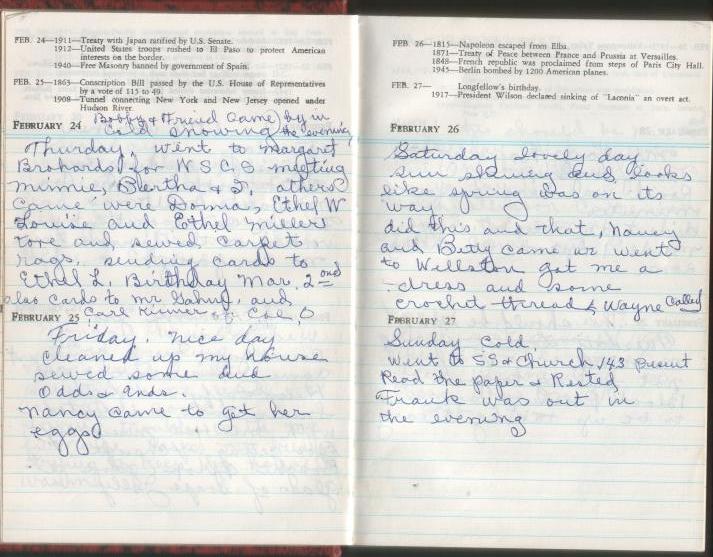 FEB. 24—1911—Treaty with Japan ratified by U.S. Senate.
1912—United States troops rushed to El Paso to protect American
interests on the border.
1940—Free Masonry banned by government of Spain.
FEB. 25—1863—Conscription Bill passed by the U.S. House of Representatives
by a vote of 115 to 49.
1908—Tunnel connecting New York and New Jersey opened under
Hudson River.
Bobby & Friend Came by in
FEBRUARY 24 Cold snowing the evening
Thursday, went to Margaret
Brohards for W S C S meeting
Minnie, Bertha & I, others
came were Donna, Ethel W
Louise and Ethel Millers
tore and sewed carpet
rags, sending cards to
Ethel L. Birthday Mar. 2nd
also cards to Mr and
FEBRUARY 25 Carl of Col, O
Friday. nice day
cleaned up my house
sewed some and
odds & ends.
Nancy came to get her
eggs
FEB. 26—1815—Napoleon escaped from Elba.
1871—Treaty of Peace between France and Prussia at Versailles.
1848—French republic was proclaimed from steps of Paris City Hall.
1945—Berlin bombed by 1200 American planes.
FEB. 27— Longfellow's birthday.
1917—President Wilson declared sinking of "Laconia" an overt act.
FEBRUARY 26
Saturday lovely day
sun shining and looks
like spring was on its
way
did this and that, Nancy
and Betty came we went
to Wellston got me a
dress and some
crochet thread & Wayne called
FEBRUARY 27
Sunday Cold.
Went to SS & Church 143 present
Read the paper & Rested
Frank was out in
the evening